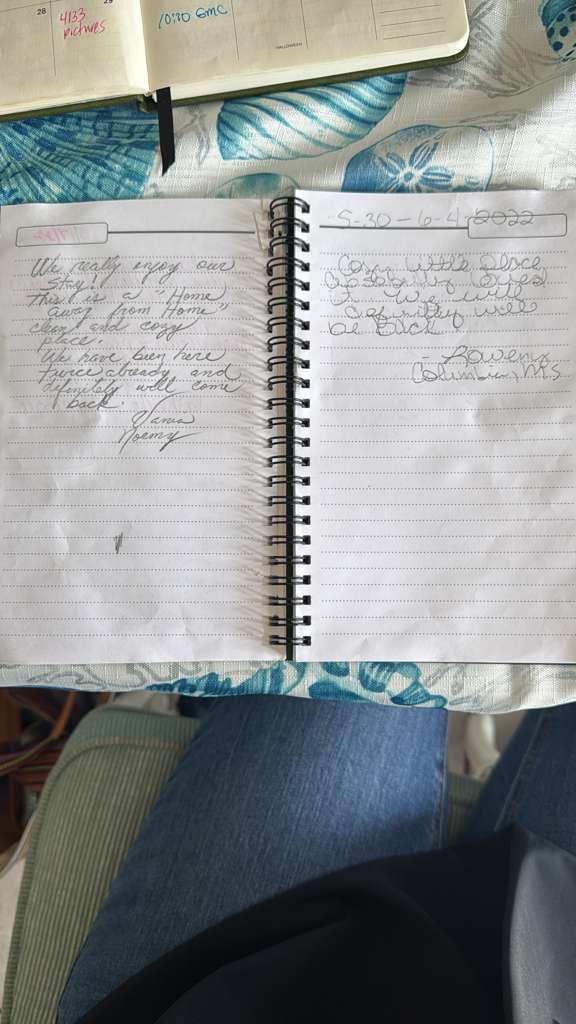 28
29
4133
pictures
10:30 GMC
HALLOWEEN
We really enjoy our
Stay!
This is a "Home
away from Home"
clean and cozy
place.
We have been here
twice already and
definitely will come
back
Vania
Noemy
5-30 - 6-4 2022
Cozy little place
absolutely loved
it. We will
definitely will
be back
- Rowen
Columbus, MS